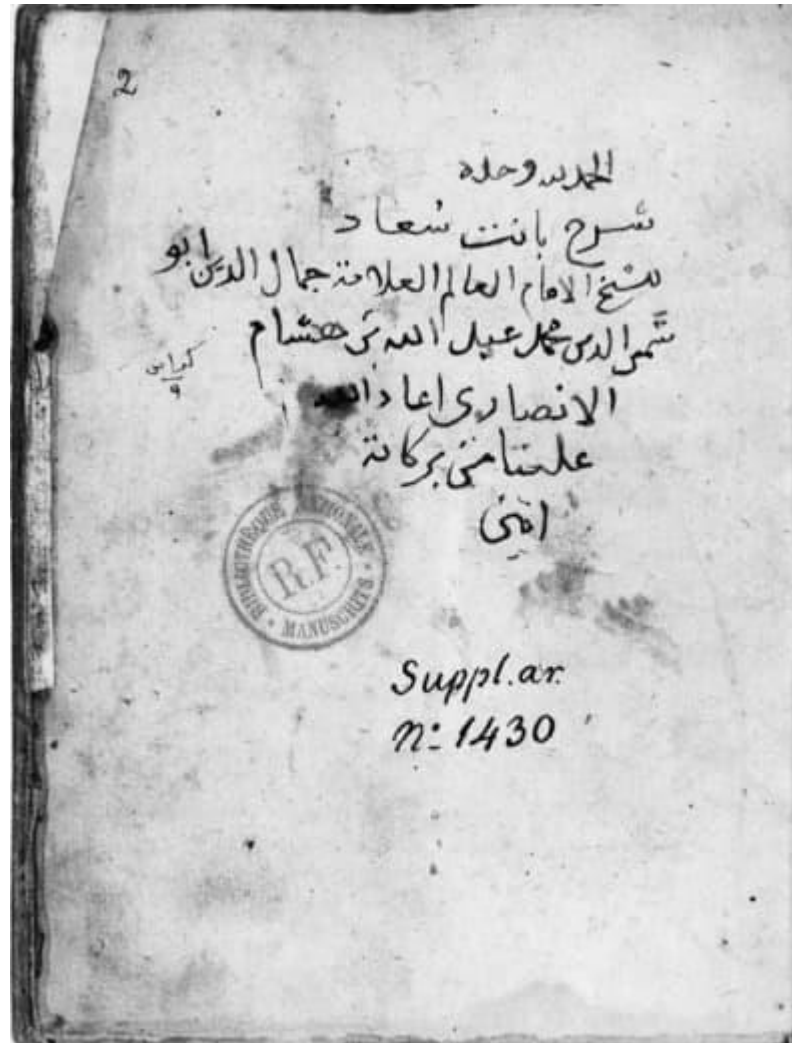 2
الحمد لله وحده
شرح بانت سعاد
للشيخ الامام العالم العلامة جمال الدين ابو
شمس الدين محمد عبد الله بن هشام
الانصاري اعاد الله
علينا من بركاته
امين
كراس
٩
BIBLIOTHÈQUE NATIONALE
R.F.
MANUSCRITS
Suppl. ar.
n° 1430